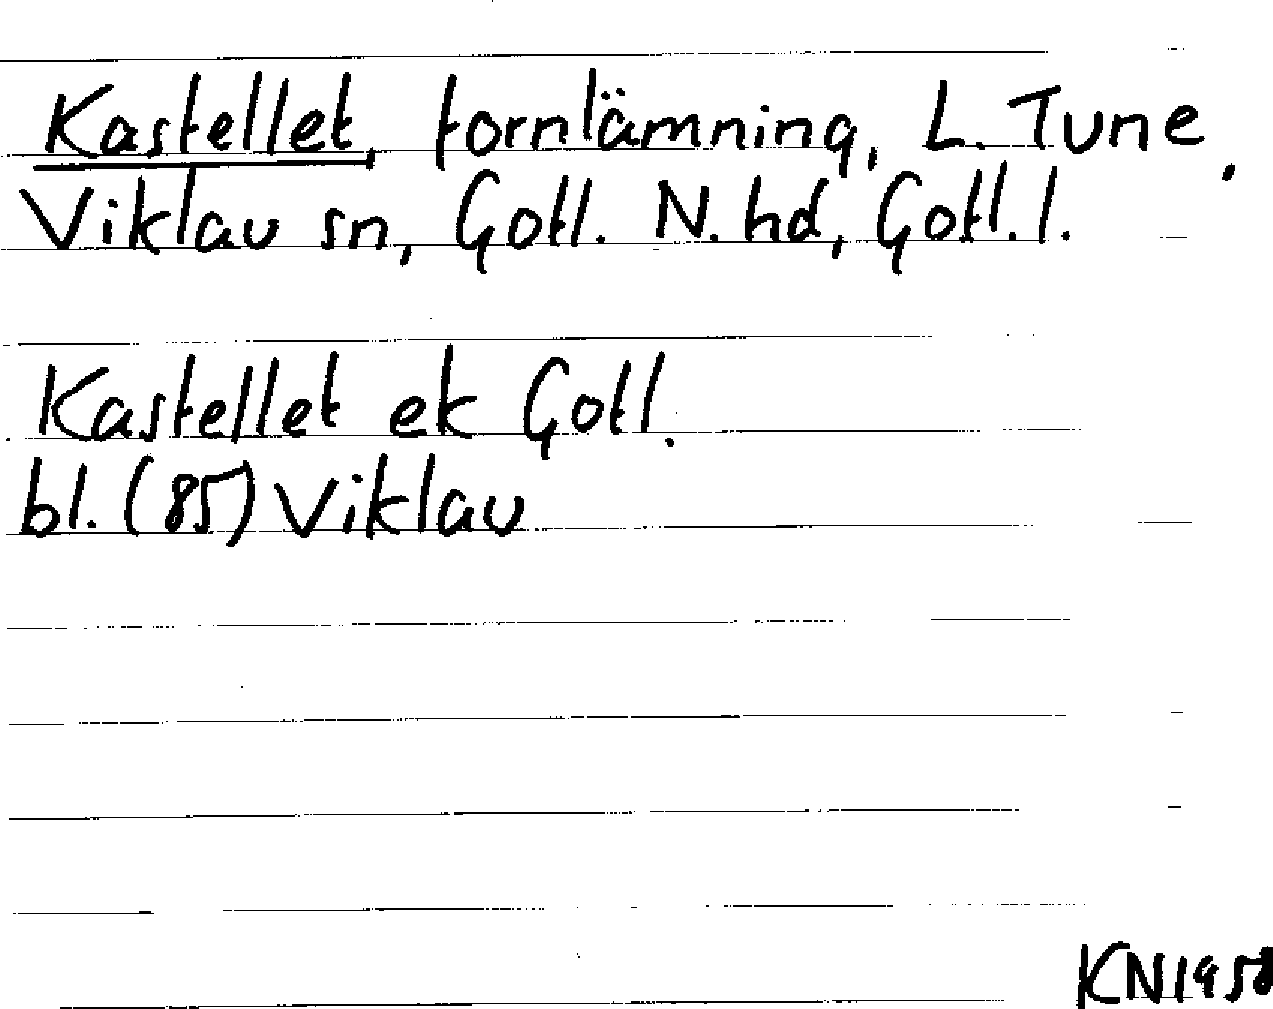 Kastellet, fornlämning, L. Tune.
Viklau sn, Gotl. N. hd, Gotl. l.
Kastellet ek Gotl.
bl. (85) Viklau
KN1958